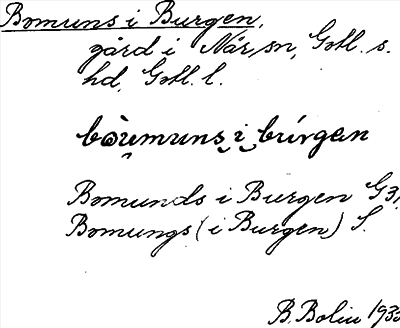 Bomuns i Burgen,
gård i När, sn, Gotl. s.
hd, Gotl. l.
bòu̯muns̮ i̮ búrgen
Bomunds i Burgen G3,
Bomungs (i Burgen) S.
B. Bolin 1933